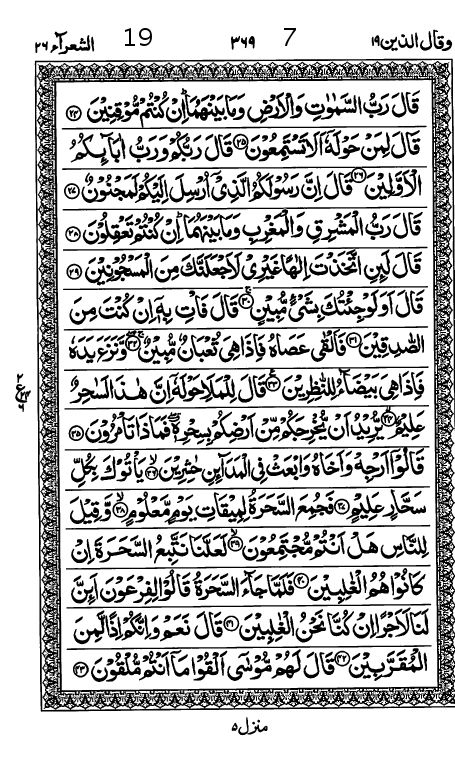 وقال الذين ١٩ ٣٦٩ 7 19 الشعرآء ٢٦
قَالَ رَبُّ السَّمٰوٰتِ وَالْاَرْضِ وَمَا بَيْنَهُمَا ؕ اِنْ كُنْتُمْ مُّوْقِنِيْنَ ﴿۲۴﴾
قَالَ لِمَنْ حَوْلَهٗۤ اَلَا تَسْتَمِعُوْنَ ﴿۲۵﴾ قَالَ رَبُّكُمْ وَرَبُّ اٰبَآىِٕكُمُ
الْاَوَّلِيْنَ ﴿۲۶﴾ قَالَ اِنَّ رَسُوْلَكُمُ الَّذِيْۤ اُرْسِلَ اِلَيْكُمْ لَمَجْنُوْنٌ ﴿۲۷﴾
قَالَ رَبُّ الْمَشْرِقِ وَالْمَغْرِبِ وَمَا بَيْنَهُمَا ؕ اِنْ كُنْتُمْ تَعْقِلُوْنَ ﴿۲۸﴾
قَالَ لَىِٕنِ اتَّخَذْتَ اِلٰهًا غَيْرِيْ لَاَجْعَلَنَّكَ مِنَ الْمَسْجُوْنِيْنَ ﴿۲۹﴾
قَالَ اَوَلَوْ جِئْتُكَ بِشَيْءٍ مُّبِيْنٍ ﴿۳۰﴾ قَالَ فَاْتِ بِهٖۤ اِنْ كُنْتَ مِنَ
الصّٰدِقِيْنَ ﴿۳۱﴾ فَاَلْقٰى عَصَاهُ فَاِذَا هِيَ ثُعْبَانٌ مُّبِيْنٌ ﴿۳۲﴾ وَّنَزَعَ يَدَهٗ
فَاِذَا هِيَ بَيْضَآءُ لِلنّٰظِرِيْنَ ﴿۳۳﴾ قَالَ لِلْمَلَاِ حَوْلَهٗۤ اِنَّ هٰذَا لَسٰحِرٌ
عَلِيْمٌ ﴿۳۴﴾ يُّرِيْدُ اَنْ يُّخْرِجَكُمْ مِّنْ اَرْضِكُمْ بِسِحْرِهٖ ۖ فَمَاذَا تَاْمُرُوْنَ ﴿۳۵﴾
قَالُوْۤا اَرْجِهْ وَاَخَاهُ وَابْعَثْ فِي الْمَدَآىِٕنِ حٰشِرِيْنَ ﴿۳۶﴾ يَاْتُوْكَ بِكُلِّ
سَحَّارٍ عَلِيْمٍ ﴿۳۷﴾ فَجُمِعَ السَّحَرَةُ لِمِيْقَاتِ يَوْمٍ مَّعْلُوْمٍ ﴿۳۸﴾ وَّقِيْلَ
لِلنَّاسِ هَلْ اَنْتُمْ مُّجْتَمِعُوْنَ ﴿۳۹﴾ لَعَلَّنَا نَتَّبِعُ السَّحَرَةَ اِنْ
كَانُوْا هُمُ الْغٰلِبِيْنَ ﴿۴۰﴾ فَلَمَّا جَآءَ السَّحَرَةُ قَالُوْا لِفِرْعَوْنَ اَىِٕنَّ
لَنَا لَاَجْرًا اِنْ كُنَّا نَحْنُ الْغٰلِبِيْنَ ﴿۴۱﴾ قَالَ نَعَمْ وَاِنَّكُمْ اِذًا لَّمِنَ
الْمُقَرَّبِيْنَ ﴿۴۲﴾ قَالَ لَهُمْ مُّوْسٰۤى اَلْقُوْا مَاۤ اَنْتُمْ مُّلْقُوْنَ ﴿۴۳﴾
منزل ٥